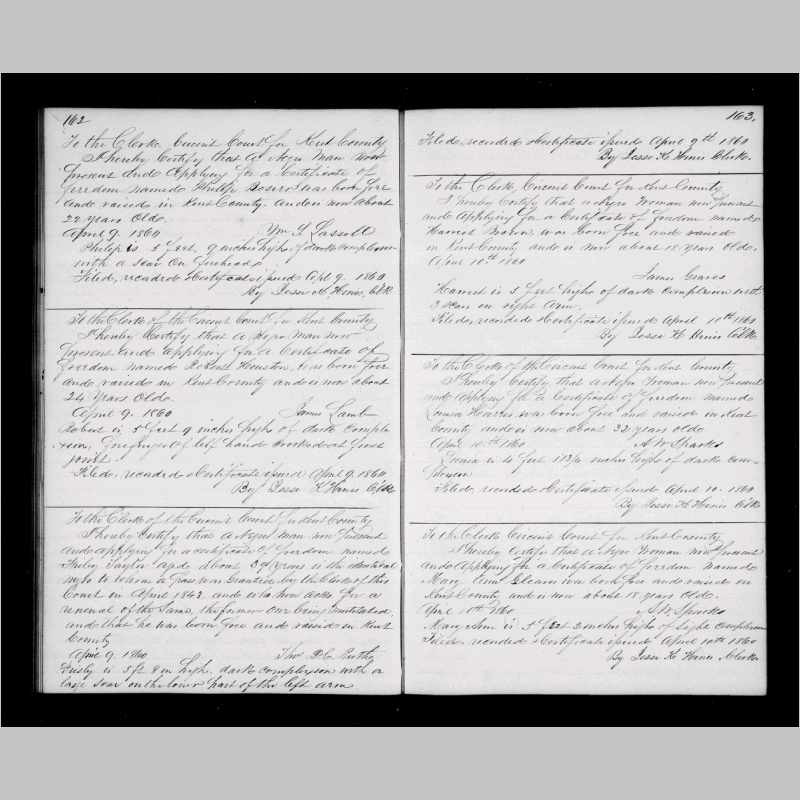 162
To the Clerk Circuit Court for Kent County
I hereby Certify that a Negro Man now
present and Applying for a Certificate of
freedom named Philip was born free
and raised in Kent County. and is now about
22 years Old.
April 9. 1860 Wm. T. Lassell
Philip is 5 feet 9 inches high of dark complexion
with a scar on forehead.
Filed, recorded & Certificate issued Apl 9. 1860
By Jesse K Hines Clk
To the Clerk of the Circuit Court for Kent County
I hereby Certify that a Negro man now
present and applying for a Certificate of
freedom named Robert Houston, was born free
and raised in Kent County and is now about
24 Years Old.
April 9. 1860 James Lamb
Robert is 5 feet 9 inches high of dark comple
xion, finger of left hand crooked at first
joint.
Filed, recorded & Certificate issued Apl 9. 1860
By Jesse K Hines Clk
To the Clerk of the Circuit Court for Kent County
I hereby Certify that a Negro man now present
and applying for a certificate of freedom named
Taylor aged about years is the identical
negro to whom a pass was Granted by the Clerk of this
Court in April 1843. and who now asks for a
renewal of the Same, the former One being mutilated.
and that he was born free and raised in Kent
County
April 9. 1860 Thos.
is 5 ft 8 in high, dark complexion with a
large scar on the lower part of the left arm
163.
Filed, recorded & Certificate issued April 9th 1860
By Jesse K Hines Clerk.
To the Clerk, Circuit Court for Kent County
I hereby Certify that a Negro Woman now present
and Applying for a Certificate of freedom named
Harriet was born free and raised
in Kent County and is now about 18 Years Old.
April 10th 1860
James Graves
Harriet is 5 feet high of dark complexion with
a Scar on right Arm.
Filed, recorded & Certificate issued April 10th 1860
By Jesse K Hines Clk
To the Clerk of the Circuit Court for Kent County
I hereby Certify that a Negro Woman now present
and Applying for a Certificate of freedom named
Louisa was born free and raised in Kent
County and is now about 32 years old
April 10th 1860 S. W. Spearks
Louisa is feet inches high of dark com-
plexion
Filed, recorded & Certificate issued April 10. 1860
By Jesse K Hines Clk
To the Clerk Circuit Court for Kent County
I hereby Certify that a Negro Woman now present
and Applying for a Certificate of freedom named
Mary Ann was born free and raised in
Kent County and is now about 18 years Old.
April 10th 1860 S. W. Spearks
Mary Ann is 5 feet 2 inches high of light complexion
Filed, recorded & Certificate issued April 10th 1860
By Jesse K Hines, Clerk